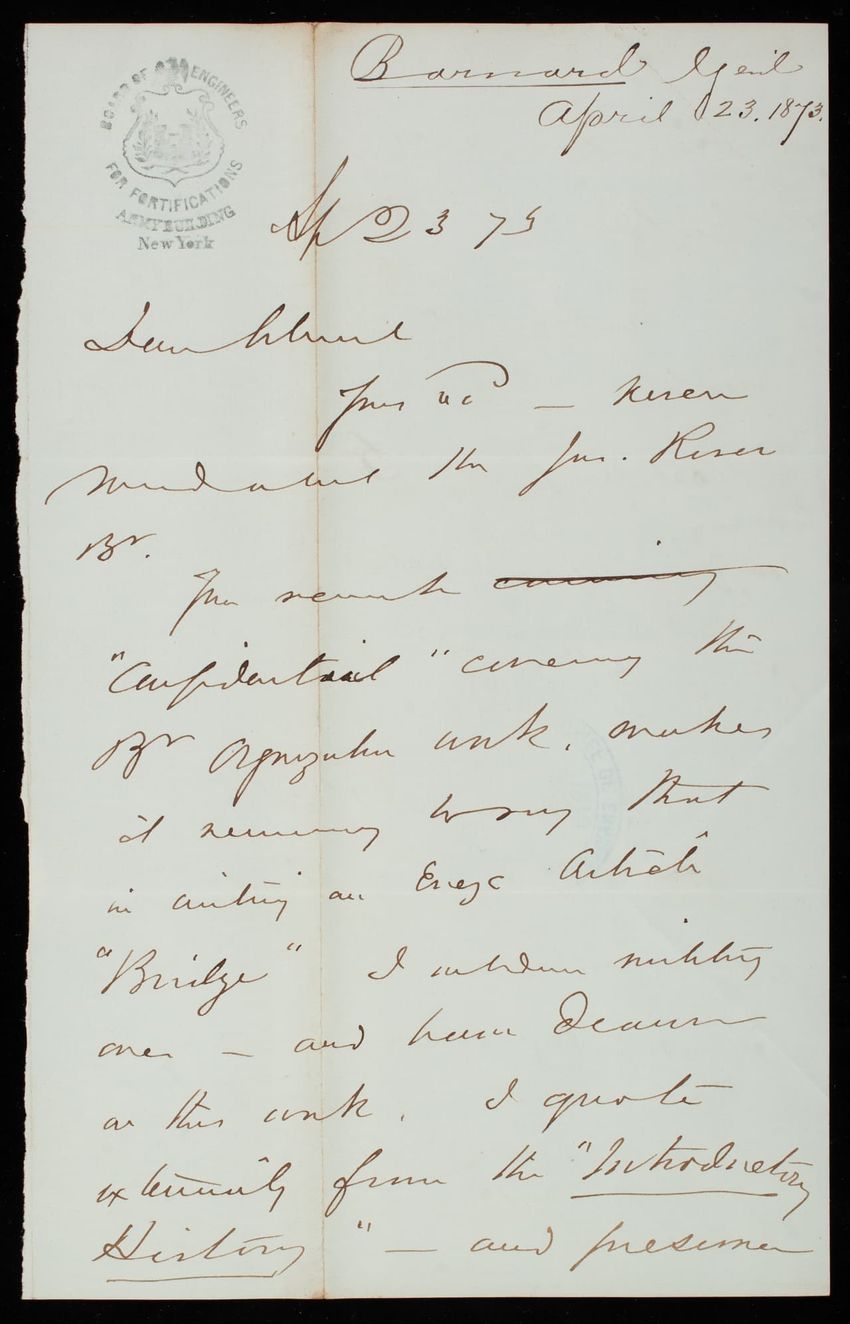 BOARD OF ENGINEERS
FOR FORTIFICATIONS
ARMY BUILDING
New York
Barnard Genl
April 23. 1873.
Ap 23 73
Dear
recd —
the Jas. River
Br.
Your remark
"Confidential" concerning the
Br Organization work, makes
it necessary to say that
in writing an Encyc Article
"Bridge" I military
ones — and have drawn
on this work. I quote
extensively from the "Introductory
History" — and presume